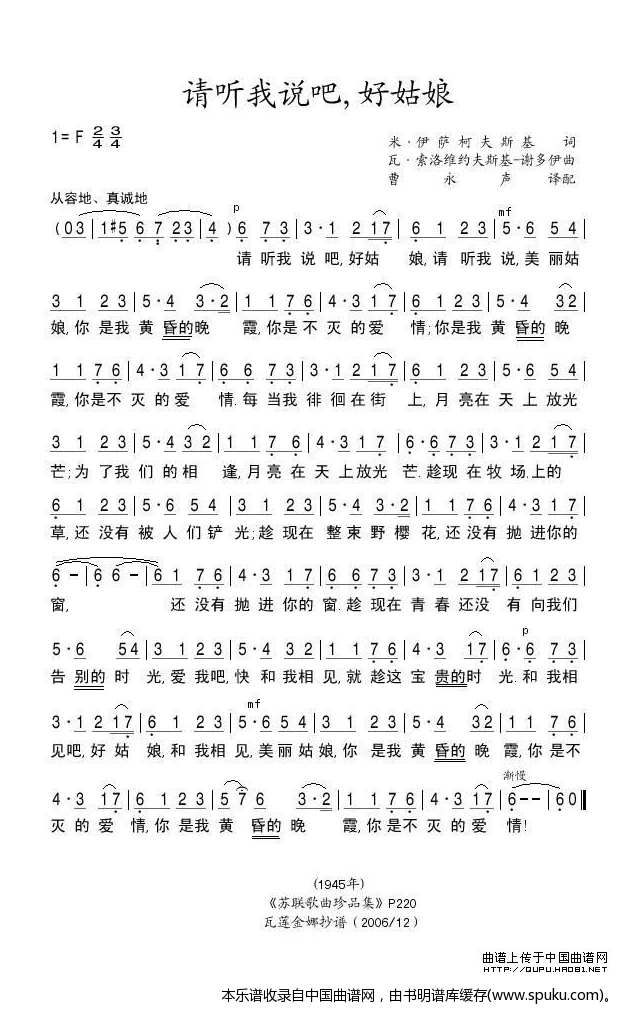 请听我说吧,好姑娘
1= F 2/4 3/4
米·伊萨柯夫斯基 词
瓦·索洛维约夫斯基-谢多伊曲
曹永声 译配
从容地、真诚地
p
mf
(03 | 1#5 6 7 23 | 4 ) 6 7 3 | 3·1 2 17 | 6 1 2 3 | 5·6 5 4
请听我 说吧,好姑 娘,请 听我 说,美丽姑
3 1 2 3 | 5·4 3·2 | 1 1 7 6 | 4·3 17 | 6 1 2 3 | 5·4 32
娘,你是我 黄昏的晚 霞,你是不灭的爱 情;你是我黄昏的晚
1 1 7 6 | 4·3 17 | 6 6 7 3 | 3·1 2 17 | 6 1 2 3 | 5·6 5 4
霞,你是不 灭的爱 情.每当我 徘徊在街 上,月亮在天上放光
3 1 2 3 | 5·4 32 | 1 1 7 6 | 4·3 17 | 6 6 7 3 | 3·1 2 17
芒;为了我们的相 逢,月亮在天上放光芒.趁现在牧场.上的
6 1 2 3 | 5·6 5 4 | 3 1 2 3 | 5·4 3·2 | 1 1 7 6 | 4·3 17
草,还没有被人们铲光;趁现在整束野樱花,还没有抛进你的
6 - | 6 6 - | 6 1 7 6 | 4·3 17 | 6 6 7 3 | 3·1 2 17 | 6 1 2 3
窗, 还没有抛进你的窗.趁现在青春还没 有向我们
p
5·6 54 | 3 1 2 3 | 5·4 3 2 | 1 1 7 6 | 4·3 17 | 6·6 7 3
告别的时光,爱我吧,快和我相见,就趁这宝贵的时光.和我相
mf
3·1 2 17 | 6 1 2 3 | 5·6 5 4 | 3 1 2 3 | 5·4 32 | 1 1 7 6
见吧,好姑娘,和我相见,美丽姑娘,你是我黄昏的晚霞,你是不
渐慢
4·3 17 | 6 1 2 3 | 5 7 6 3·2 | 1 1 7 6 | 4·3 17 | 6 - - | 6 0 ‖
灭的爱情,你是我黄昏的晚 霞,你是不灭的爱情!
(1945年)
《苏联歌曲珍品集》P220
瓦莲金娜抄谱（2006/12）
曲谱上传于中国曲谱网
HTTP://QUPU.HAO81.NET
本乐谱收录自中国曲谱网，由书明谱库缓存(www.spuku.com)。